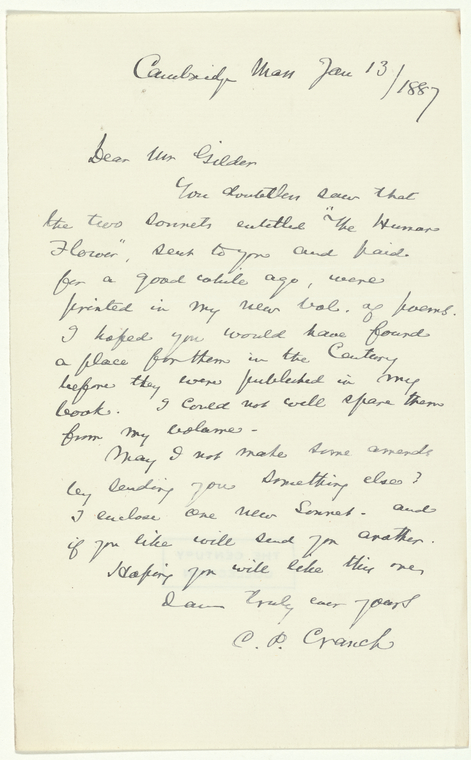 Cambridge Mass Jan 13/1887
Dear Mr Gilder
You doubtless saw that
the two sonnets entitled "The Human
Flower", sent to you and paid
for a good while ago, were
printed in my new vol. of poems.
I hoped you would have found
a place for them in the Century
before they were published in my
book. I could not well spare them
from my volume -
May I not make some amends
by sending you something else?
I enclose one new Sonnet - and
if you like will send you another.
Hoping you will like this one,
I am truly ever yours
C. P. Cranch